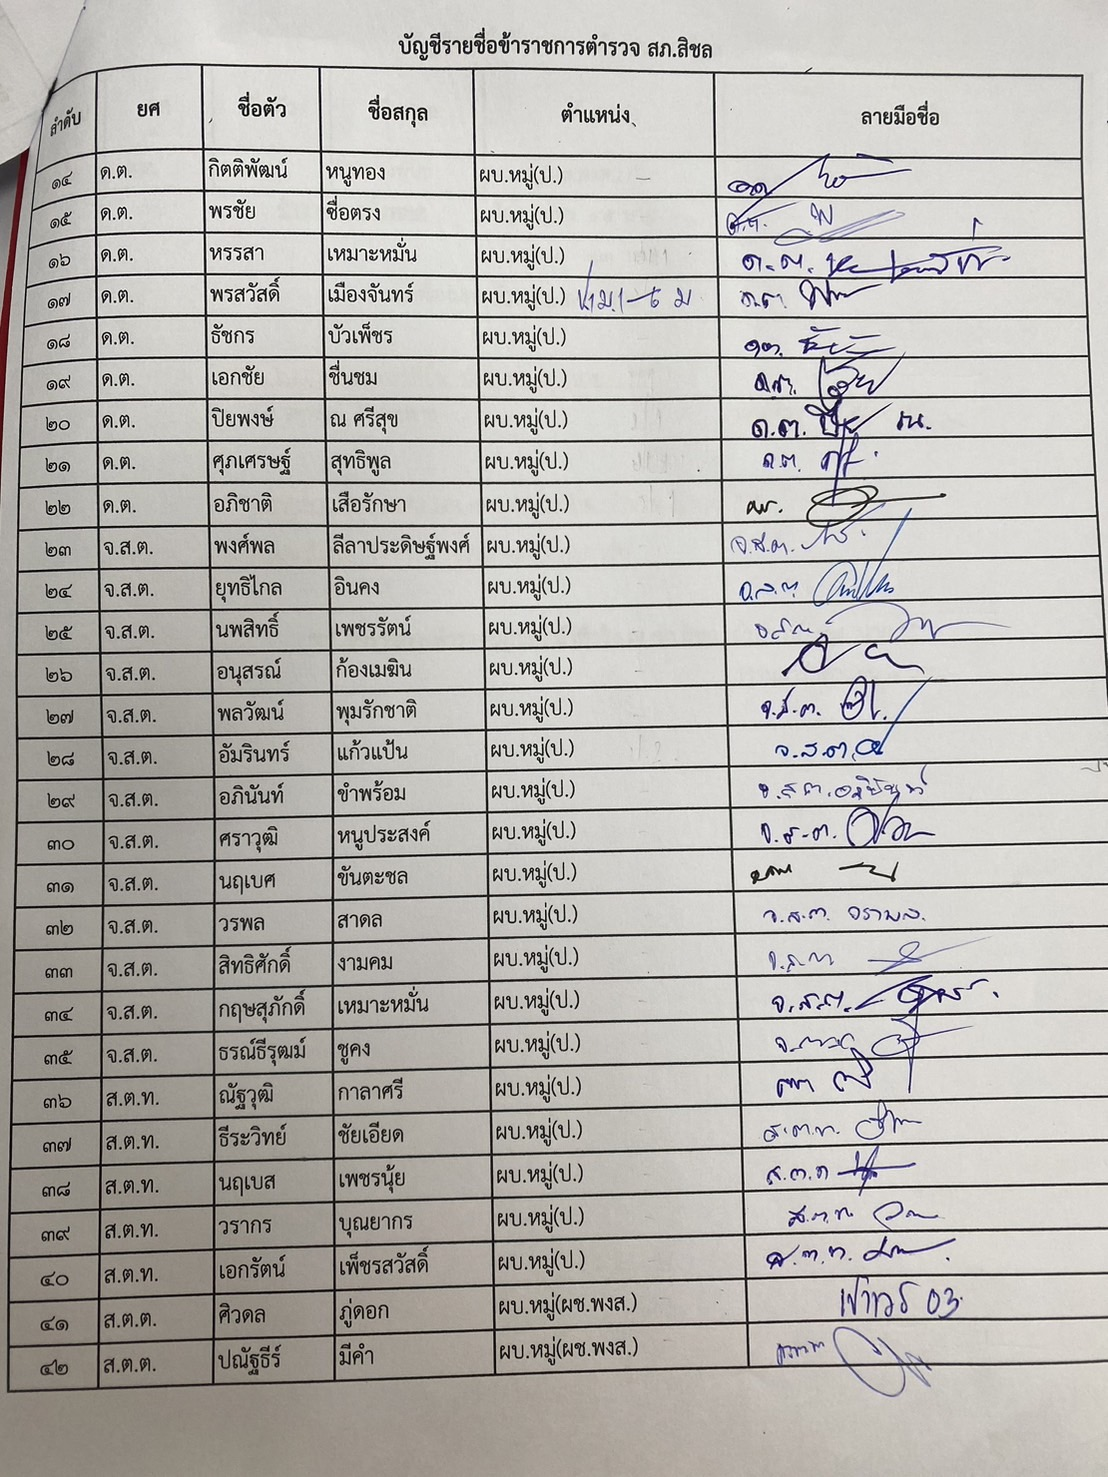 บัญชีรายชื่อข้าราชการตำรวจ สภ.สิชล
ลำดับ ยศ ชื่อตัว ชื่อสกุล ตำแหน่ง ลายมือชื่อ
๑๔ ด.ต. กิตติพัฒน์ หนูทอง ผบ.หมู่(ป.)
๑๕ ด.ต. พรชัย ชื่อตรง ผบ.หมู่(ป.) ด.ต.
๑๖ ด.ต. หรรสา เหมาะหมั่น ผบ.หมู่(ป.) ด.ต.
๑๗ ด.ต. พรสวัสดิ์ เมืองจันทร์ ผบ.หมู่(ป.) ด.ต.
๑๘ ด.ต. ธัชกร บัวเพ็ชร ผบ.หมู่(ป.) ดต.
๑๙ ด.ต. เอกชัย ชื่นชม ผบ.หมู่(ป.) ด.ต.
๒๐ ด.ต. ปิยพงษ์ ณ ศรีสุข ผบ.หมู่(ป.) ด.ต.
๒๑ ด.ต. ศุภเศรษฐ์ สุทธิพูล ผบ.หมู่(ป.) ด.ต.
๒๒ ด.ต. อภิชาติ เสือรักษา ผบ.หมู่(ป.)
๒๓ จ.ส.ต. พงศ์พล ลีลาประดิษฐ์พงศ์ ผบ.หมู่(ป.) จ.ส.ต.
๒๔ จ.ส.ต. ยุทธิไกล อินคง ผบ.หมู่(ป.) จ.ส.ต.
๒๕ จ.ส.ต. นพสิทธิ์ เพชรรัตน์ ผบ.หมู่(ป.)
๒๖ จ.ส.ต. อนุสรณ์ ก้องเมฆิน ผบ.หมู่(ป.)
๒๗ จ.ส.ต. พลวัฒน์ พุมรักชาติ ผบ.หมู่(ป.) จ.ส.ต.
๒๘ จ.ส.ต. อัมรินทร์ แก้วแป้น ผบ.หมู่(ป.) จ.ส.ต.
๒๙ จ.ส.ต. อภินันท์ ขำพร้อม ผบ.หมู่(ป.) จ.ส.ต. อภินันท์
๓๐ จ.ส.ต. ศราวุฒิ หนูประสงค์ ผบ.หมู่(ป.) จ.ส.ต.
๓๑ จ.ส.ต. นฤเบศ ขันตะชล ผบ.หมู่(ป.)
๓๒ จ.ส.ต. วรพล สาดล ผบ.หมู่(ป.) จ.ส.ต. วรพล
๓๓ จ.ส.ต. สิทธิศักดิ์ งามคม ผบ.หมู่(ป.) จ.ส.ต.
๓๔ จ.ส.ต. กฤษสุภักดิ์ เหมาะหมั่น ผบ.หมู่(ป.) จ.ส.ต.
๓๕ จ.ส.ต. ธรณ์ธีรุฒม์ ชูคง ผบ.หมู่(ป.)
๓๖ ส.ต.ท. ณัฐวุฒิ กาลาศรี ผบ.หมู่(ป.)
๓๗ ส.ต.ท. ธีระวิทย์ ชัยเอียด ผบ.หมู่(ป.) ส.ต.ท.
๓๘ ส.ต.ท. นฤเบส เพชรนุ้ย ผบ.หมู่(ป.) ส.ต.ท
๓๙ ส.ต.ท. วรากร บุณยากร ผบ.หมู่(ป.) ส.ต.ท.
๔๐ ส.ต.ท. เอกรัตน์ เพ็ชรสวัสดิ์ ผบ.หมู่(ป.) ส.ต.ท.
๔๑ ส.ต.ต. ศิวดล ภู่ดอก ผบ.หมู่(ผช.พงส.) เข้าเวร 03.
๔๒ ส.ต.ต. ปณัฐธีร์ มีคำ ผบ.หมู่(ผช.พงส.)